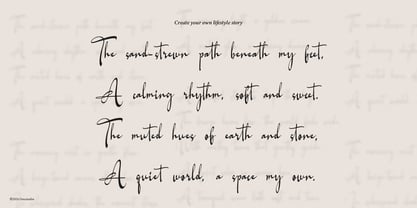 Create your own lifestyle story
The sand-strewn path beneath my feet,
A calming rhythm, soft and sweet.
The muted hues of earth and stone,
A quiet world, a space my own.